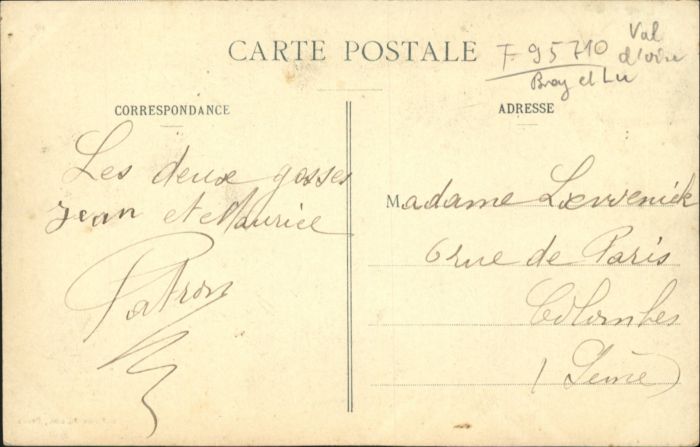 CARTE POSTALE
F-95710
Val
d'oise
Bray et Lu
CORRESPONDANCE
Les deux gosses
Jean et Maurice
Patron
ADRESSE
Madame
6 rue de Paris
Colombes
(Seine)